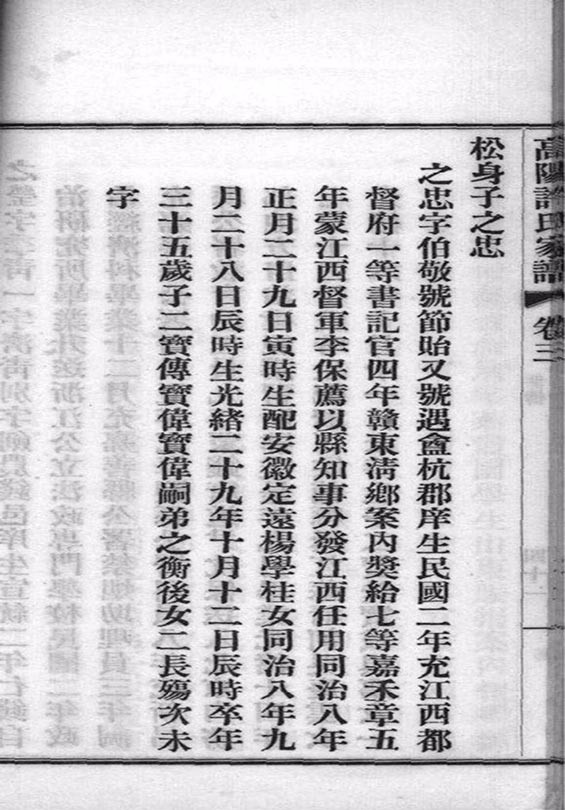 高陽許氏家譜 卷三
松身子之忠
之忠字伯敬號節貽又號遇盦杭郡庠生民國二年充江西都
督府一等書記官四年贛東清鄉案內獎給七等嘉禾章五
年蒙江西督軍李保薦以縣知事分發江西任用同治八年
正月二十九日寅時生配安徽定遠楊學桂女同治八年九
月二十八日辰時生光緒二十九年十月十二日辰時卒年
三十五歲子二寶傳寶偉寶偉嗣弟之衡後女二長殤次未
字